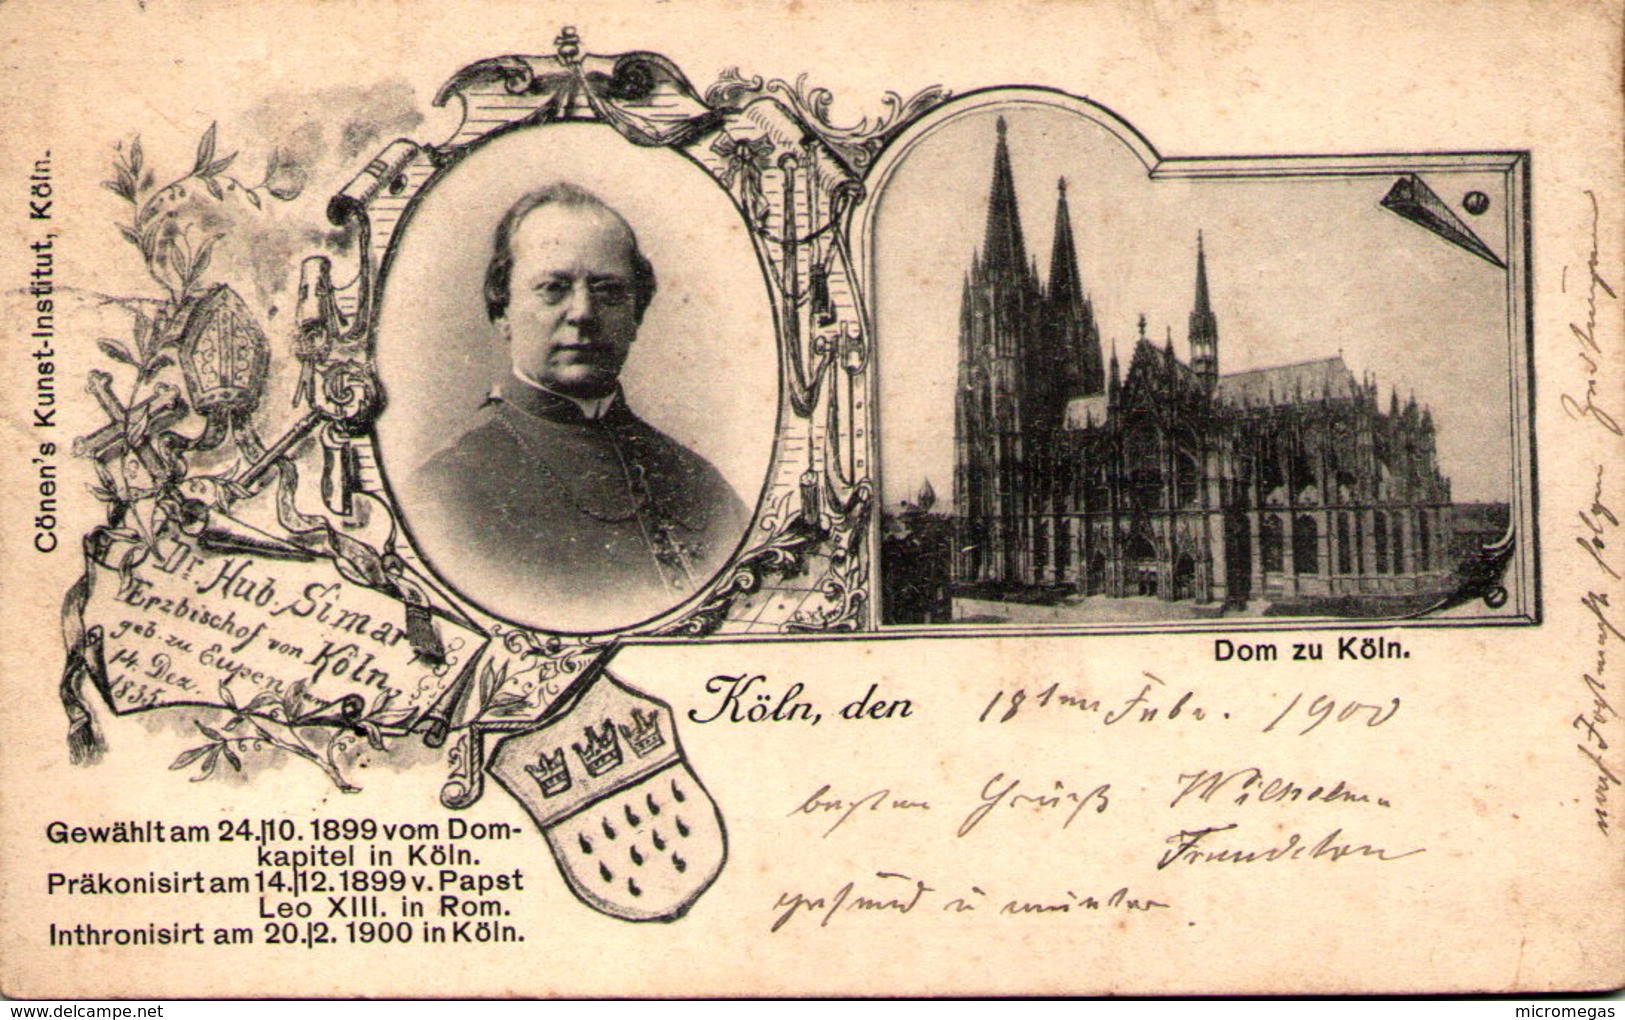 Cönen's Kunst-Institut, Köln.
Dr. Hub. Simar,
Erzbischof von Köln,
geb. zu Eupen am
14. Dez.
1835.
Dom zu Köln.
Köln, den 18ten Febr. 1900
besten Gruß Wilhelm
gesund u munter.
Gewählt am 24.|10. 1899 vom Dom-
kapitel in Köln.
Präkonisirt am 14.|12. 1899 v. Papst
Leo XIII. in Rom.
Inthronisirt am 20.|2. 1900 in Köln.
delcampe.net
micromegas